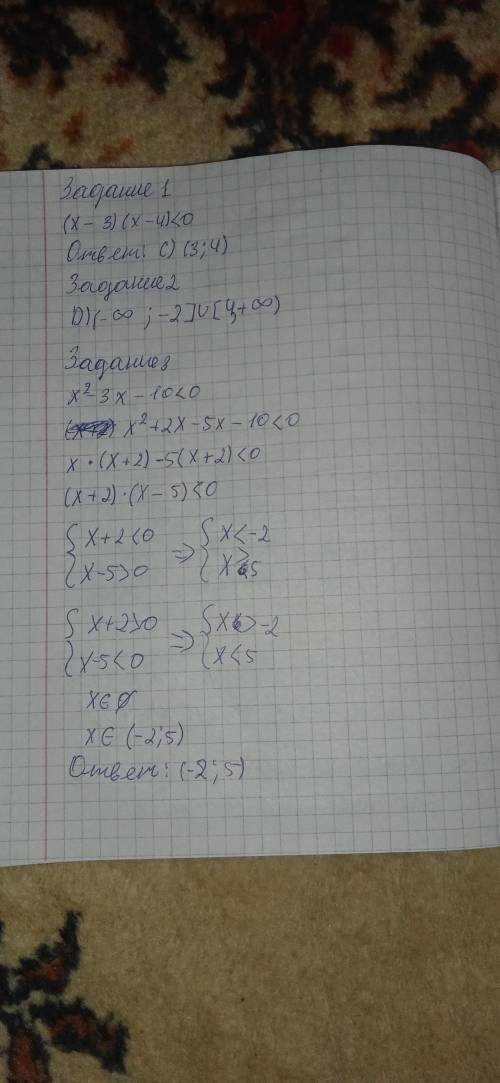 Задание 1
(x-3)(x-4)<0
Ответ: C) (3;4)
Задание 2
D) (-∞;-2]∪[4,+∞)
Задание 3
x²-3x-10<0
x²+2x-5x-10<0
x·(x+2)-5(x+2)<0
(x+2)·(x-5)<0
{ x+2<0 => { x<-2
{ x-5>0 { x>5
{ x+2>0 => { x>-2
{ x-5<0 { x<5
x∈∅
x∈(-2;5)
Ответ: (-2;5)